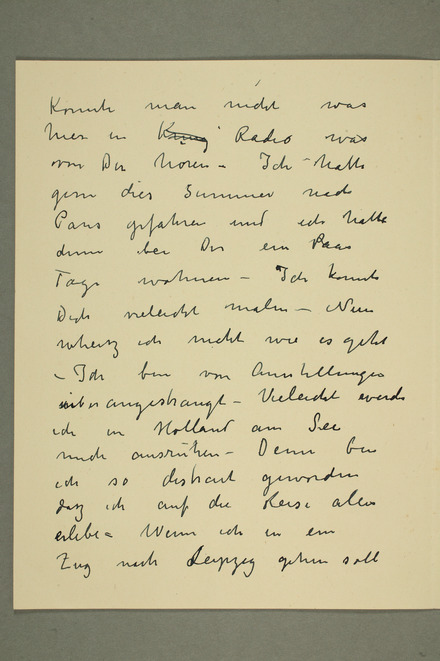 Konnte man nicht was
hier in Radio was
von Dir hören – Ich hatte
gern dies Sommer nach
Paris gefahren und ich hatte
dann bei Dir ein Paar
Tage wohnen – Ich konnte
Dich vieleicht malen – Nun
ich nicht wie es geht
– Ich bin von Ausstellungen
überangestrangt – Vieleicht werde
ich in Holland am See
mich ausruhen – Denn bin
ich so distrait geworden
dasz ich auf die Reise alles
erlebe – Wenn ich in ein
Zug nach Leipzig gehen soll